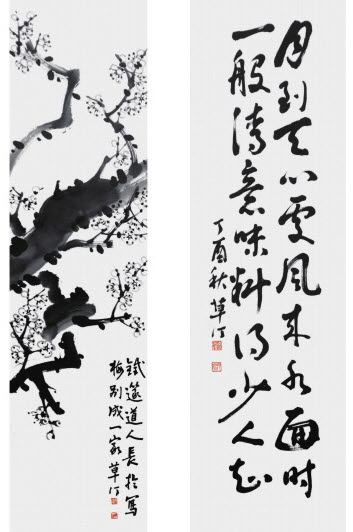 月到天心處風来水面时
一般清意味料得少人知
丁酉秋草汀
鐵篴道人長於寫
梅别成一家草汀